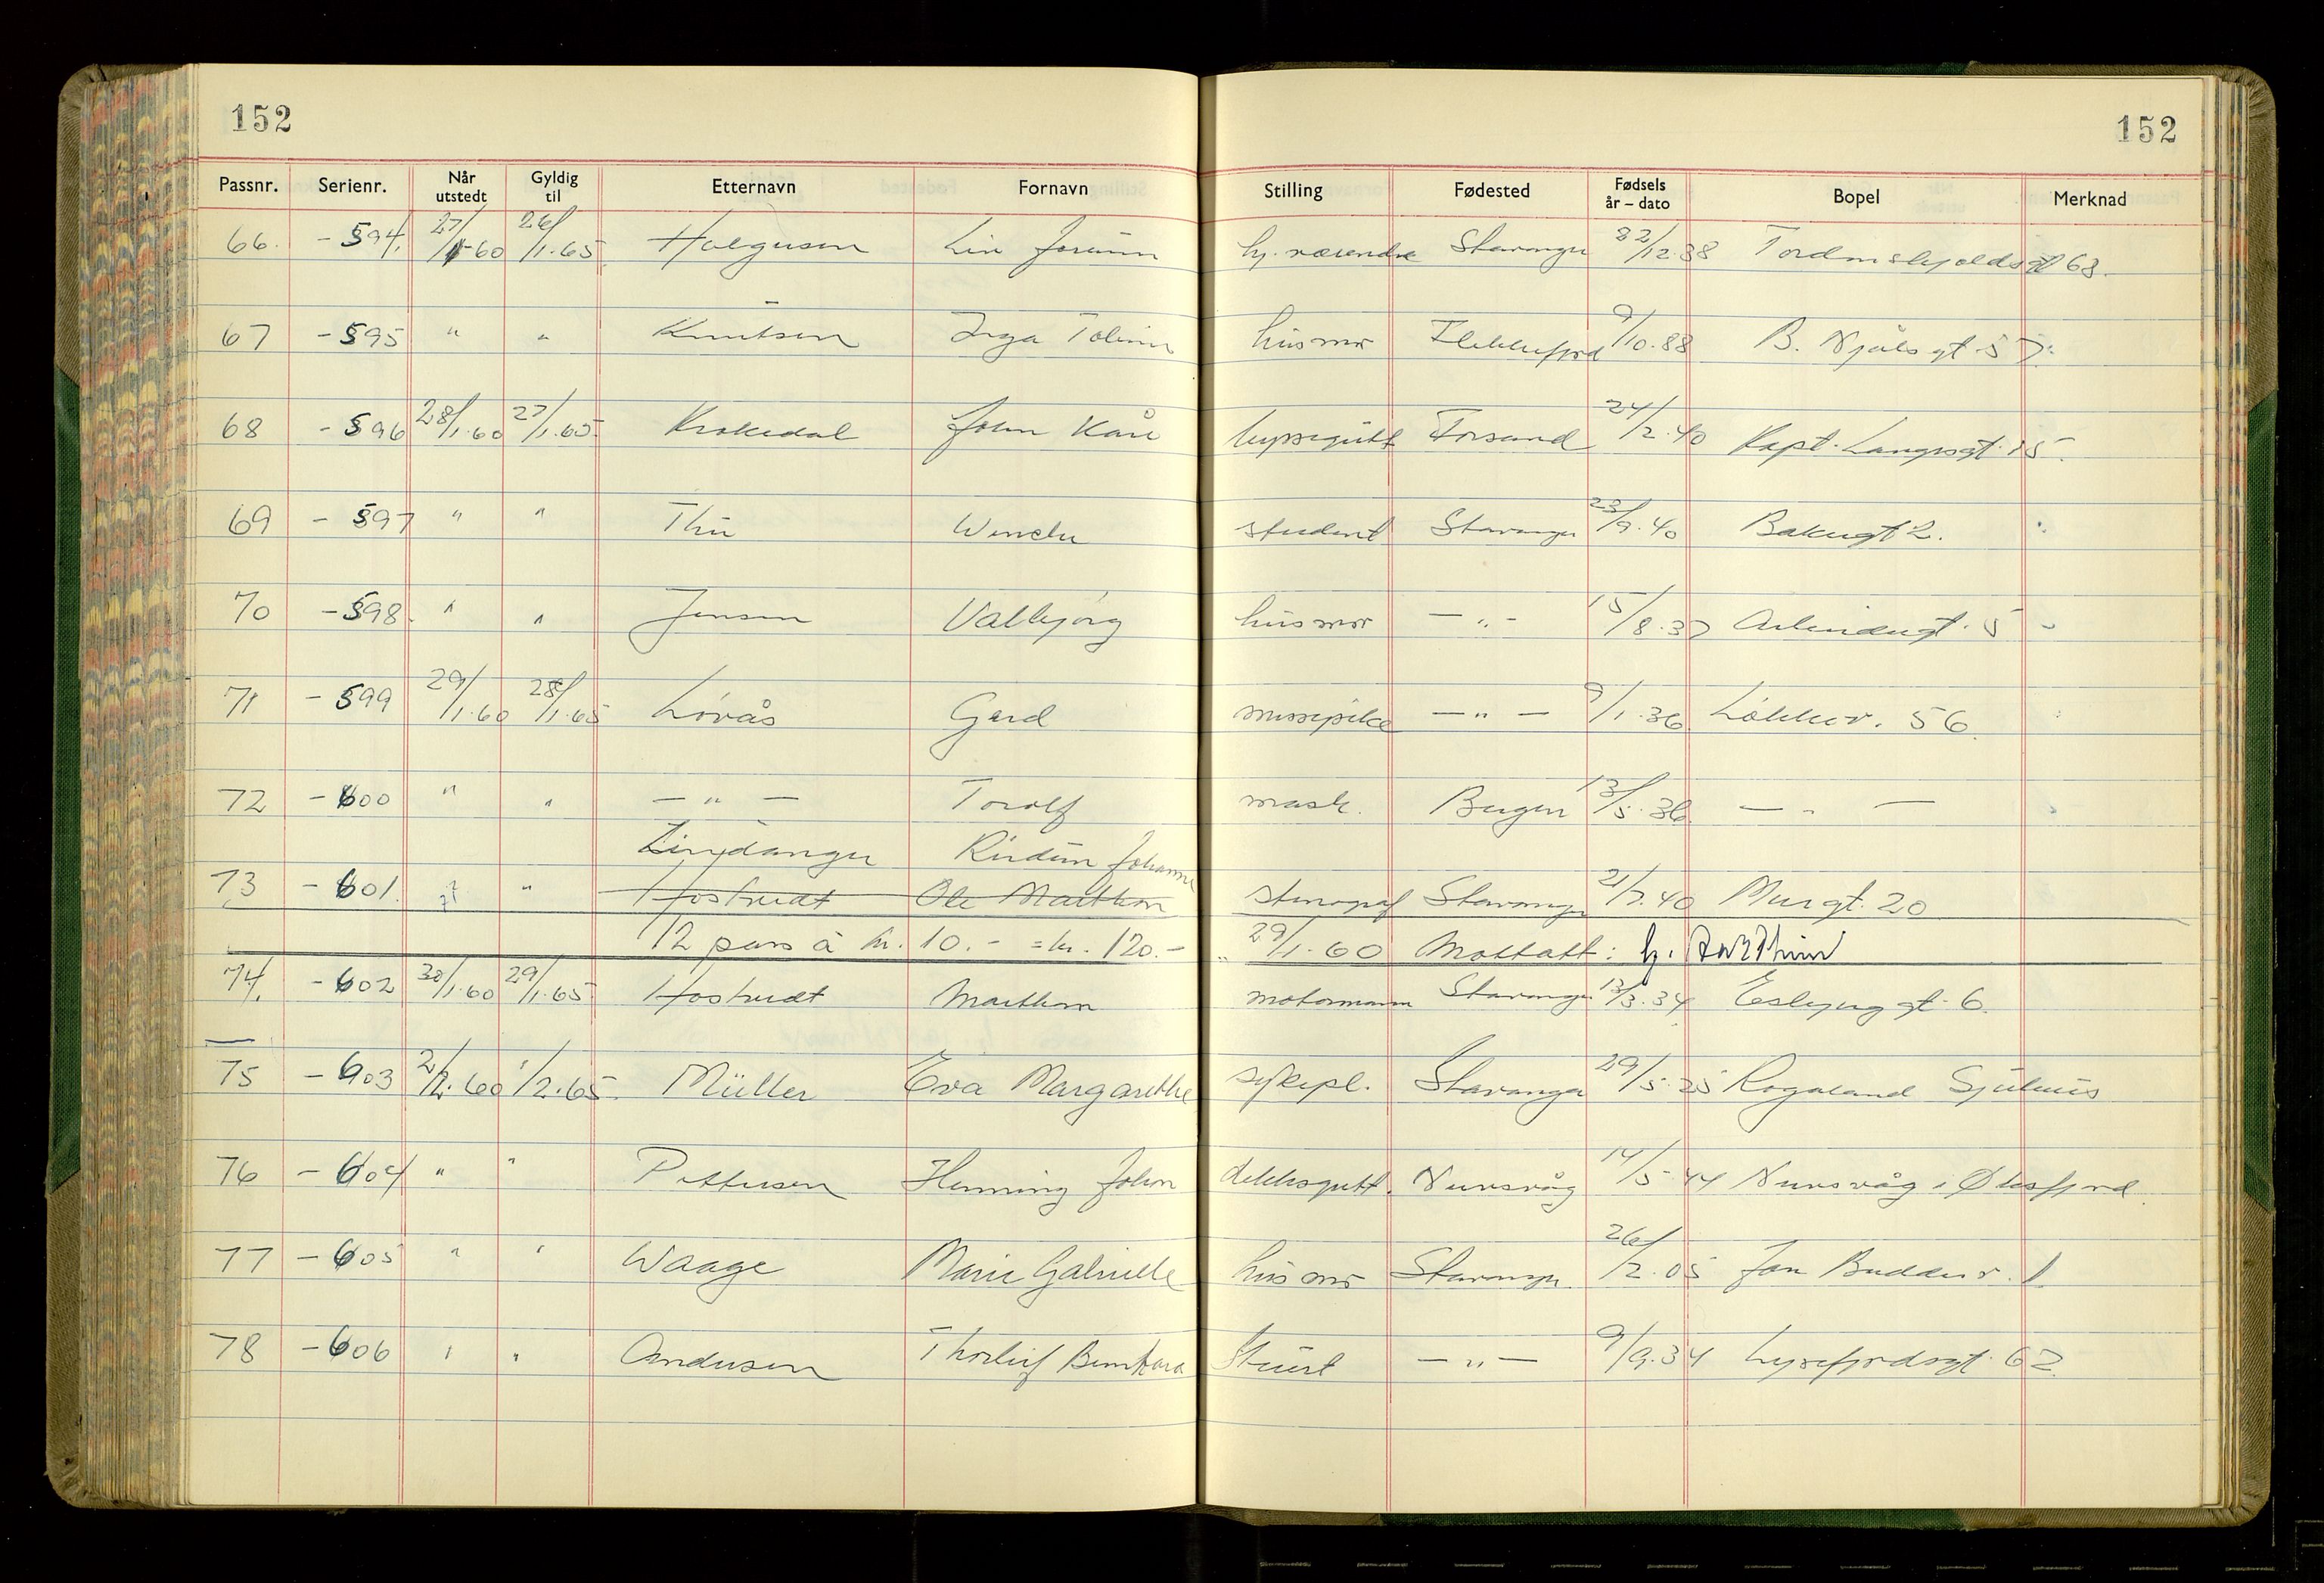 152 152
Passnr. Serienr. Når utstedt Gyldig til Etternavn Fornavn Stilling Fødested Fødsels år – dato Bopel Merknad
66. -594. 27/1-60 26/1.65 Helgesen Liv Jorunn hj. værende Stavanger 22/12.38 Tordenskjoldsgt 63.
67 -595 " " Knutsen Inga Toline husmor Flekkefjord 9/10.88 B. Njåls gt 57.
68 -596 28/1.60 27/1.65. Krokedal John Kåre byssegutt Forsand 24/2.40 Kapt. Langesgt. 15.
69 -597 " " Thu Wenche student Stavanger 23/9.40 Bakergt 2.
70 -598. " " Jensen Valbjørg husmor — " — 15/8.37 5
71 -599 29/1.60 28/1.65 Løvås Gerd messepike — " — 9/1.36 Løkkev. 56.
72 -600 " " — " — Torolf mask. Bergen 13/5.36 — " —
Lindanger Johanne
73 -601. " " Hostvedt Ole Marthon stenograf Stavanger 21/7.40 Murgt. 20
12 pass à kr. 10.- = kr. 120.- 29/1-60 Mottatt:
74. -602 30/1.60 29/1.65 Hostvedt Marthon motormann Stavanger 13/3.34 Esbjerggt. 6.
75 -603 2/2.60 1/2.65. Müller Eva Margarethe sykepl. Stavanger 29/5.25 Rogaland Sjukehus
76 -604 " " Pettersen Henning John dekksgutt. Nuvsvåg 14/5-44 Nuvsvåg i Øksfjord
77 -605 " " Waage Marie Gabrielle husmor Stavanger 26/2.05 Jon Buddesv. 1
78 -606 " " Andersen Thorleif Stuert — " — 9/9.34 Lysefjordsgt. 62